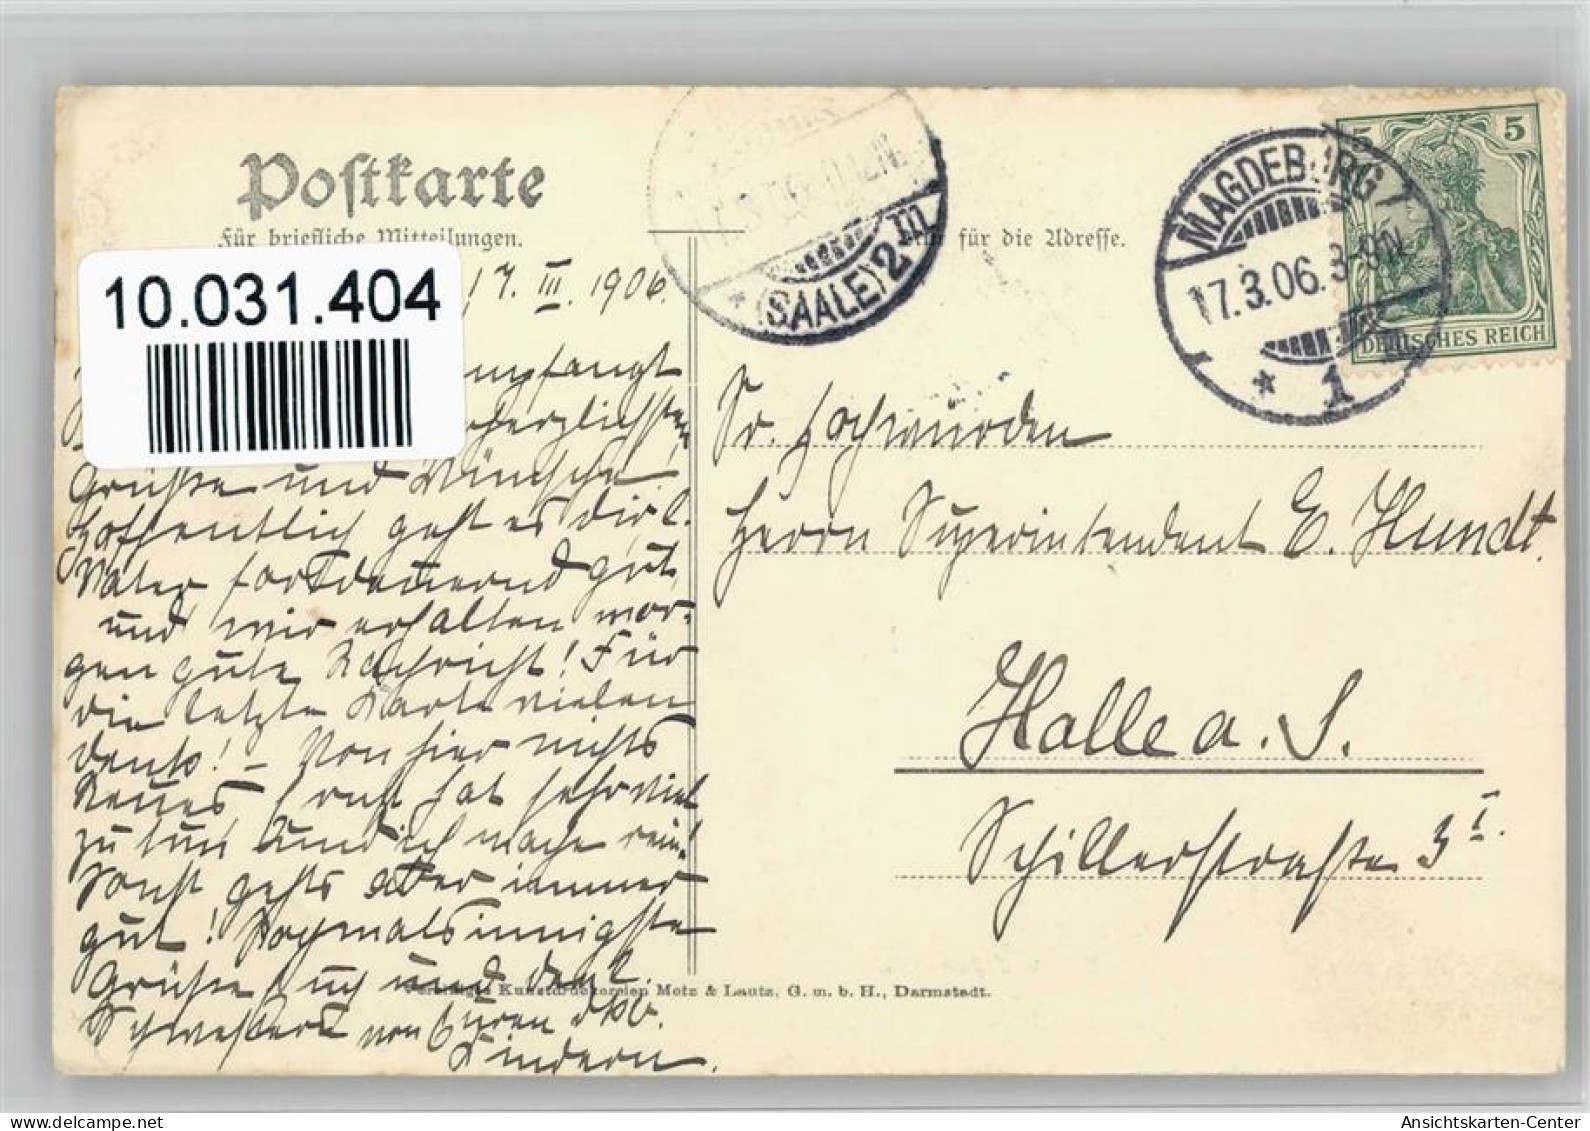 Postkarte
Für briefliche Mitteilungen.
für die Adresse.
10.031.404
17. III. 1906.
empfangt
herzlichsten
Grüße und Wünsche!
Hoffentlich geht es dir l.
Vater fortdauernd gut,
und wir erhalten mor-
gen gute Nachricht! Für
die letzte Karte vielen
Dank! – Von hier nichts
Neues, Ernst hat sehr viel
zu tun und ich mache rein!
Sonst gehts aber immer
gut! Nochmals innigste
Grüße auch und den l.
Schwestern von Euren dkb.
Kindern.
(SAALE) 2 III
MAGDEBURG 1
17.3.06. 3-9N.
* 1
5 5
DEUTSCHES REICH
Sr. Hochwürden
Herrn Superintendent E. Hundt.
Halle a. S.
Schillerstraße 3 I.
Vereinigte Kunstdruckereien Metz & Lautz, G. m. b. H., Darmstadt.
Ansichtskarten-Center